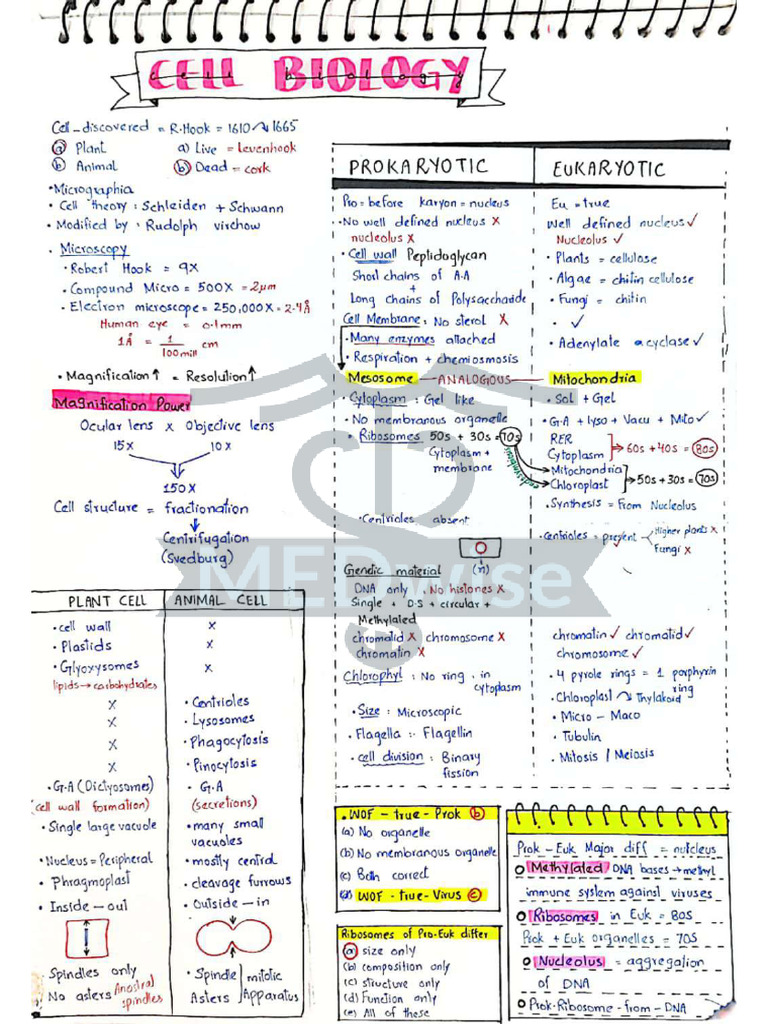 CELL BIOLOGY
cell biology
Cell discovered = R.Hook = 1610 ↷ 1665
ⓐ Plant a) Live = Levenhook
ⓑ Animal ⓑ Dead = cork
• Micrographia
• Cell theory : Schleiden + Schwann
• Modified by : Rudolph virchow
• Microscopy
• Robert Hook = 9X
• Compound Micro = 500X = 2µm
• Electron microscope = 250,000X = 2-4Å
Human eye = 0.1mm
1Å = 1/100mill cm
• Magnification ↑ = Resolution ↑
Magnification Power
Ocular lens X Objective lens
15X 10X
150X
Cell structure = fractionation
Centrifugation
(Svedburg)
PLANT CELL ANIMAL CELL
• cell wall X
• Plastids X
• Glyoxysomes X
lipids → carbohydrates
X • Centrioles
X • Lysosomes
X • Phagocytosis
X • Pinocytosis
• G.A (Dictyosomes) • G.A
(cell wall formation) (secretions)
• Single large vacuole • many small vacuoles
• Nucleus = Peripheral • mostly central
• Phragmoplast • cleavage furrows
• Inside - out • Outside - in
• Spindles only • Spindle mitotic
No asters Anastral spindles Asters Apparatus
PROKARYOTIC EUKARYOTIC
Pro = before karyon = nucleus Eu = true
• No well defined nucleus X Well defined nucleus ✓
nucleolus X Nucleolus ✓
• Cell wall Peptidoglycan • Plants = cellulose
Short chains of A.A • Algae = chitin cellulose
+
Long chains of Polysaccharide • Fungi = chitin
Cell Membrane, No sterol X • ✓
• Many enzymes attached • Adenylate cyclase ✓
• Respiration + chemiosmosis
Mesosome — ANALOGOUS — Mitochondria
• Cytoplasm : Gel like • Sol + Gel
• No membranous organelle • G.A + lyso + Vacu + Mito ✓
• Ribosomes 50s + 30s = 70s RER
Cytoplasm + membrane Cytoplasm → 60s + 40s = 80s
endosymbiosis Mitochondria
Chloroplast → 50s + 30s = 70s
• Synthesis = From Nucleolus
• Centrioles absent • Centrioles = present Higher plants X
Fungi X
(n)
Genetic material
DNA only, No histones X
Single + D.S + circular +
Methylated
chromatid X chromosome X chromatin ✓ chromatid ✓
chromatin X chromosome ✓
Chlorophyl : No ring, in cytoplasm • 4 pyrole rings = 1 porphyrin ring
• Chloroplast ↷ Thylakoid
• Size : Microscopic • Micro - Maco
• Flagella :- Flagellin • Tubulin
• cell division : Binary fission • Mitosis / Meiosis
• WOF - true - Prok ⓑ
(a) No organelle
(b) No membranous organelle
(c) Both correct
(d) WOF - true - Virus ⓒ
Ribosomes of Pro-Euk differ
ⓐ size only
(b) composition only
(c) structure only
(d) Function only
(e) All of these
Prok - Euk Major diff = nucleus
Methylated DNA bases → methyl
immune system against viruses
Ribosomes in Euk = 80S
Prok + Euk organelles = 70S
Nucleolus = aggregation
of DNA
Prok-Ribosome - from - DNA
MEDwise